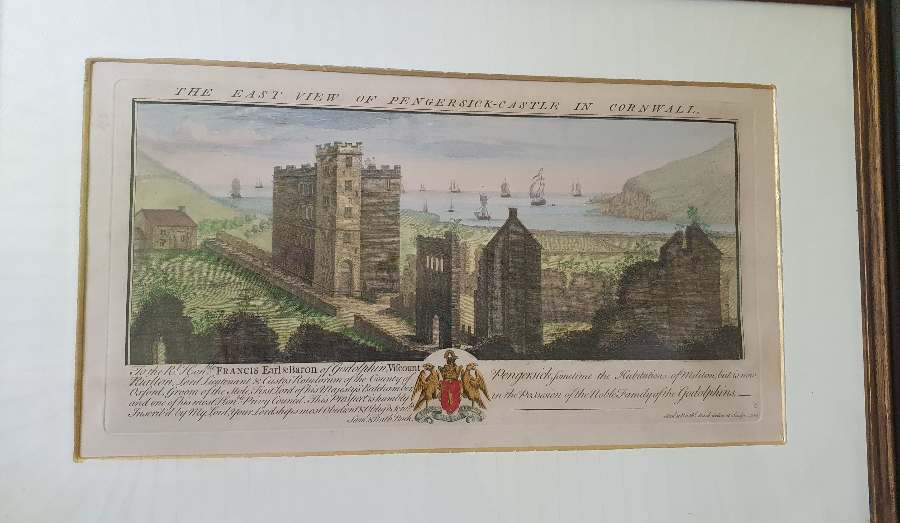 THE EAST VIEW OF PENGERSICK-CASTLE IN CORNWALL.
To the Rt. Honble. FRANCIS Earl & Baron of Godolphin, Viscount
Rialton, Lord Lieutenant & Custos Rotulorum of the County of
Oxford, Groom of the Stole, First Lord of his Majesty's Bedchamber,
and one of his most Honble. Privy Council. This Prospect is humbly
Inscrib'd by My Lord, Your Lordships most Obedient &
Saml. & Nathl. Buck.
Pengersick, sometime the Habitation of Militon, but is now
in the Possession of the Noble Family of the Godolphins.
Saml. & Nathl. Buck delin. et Sculp.